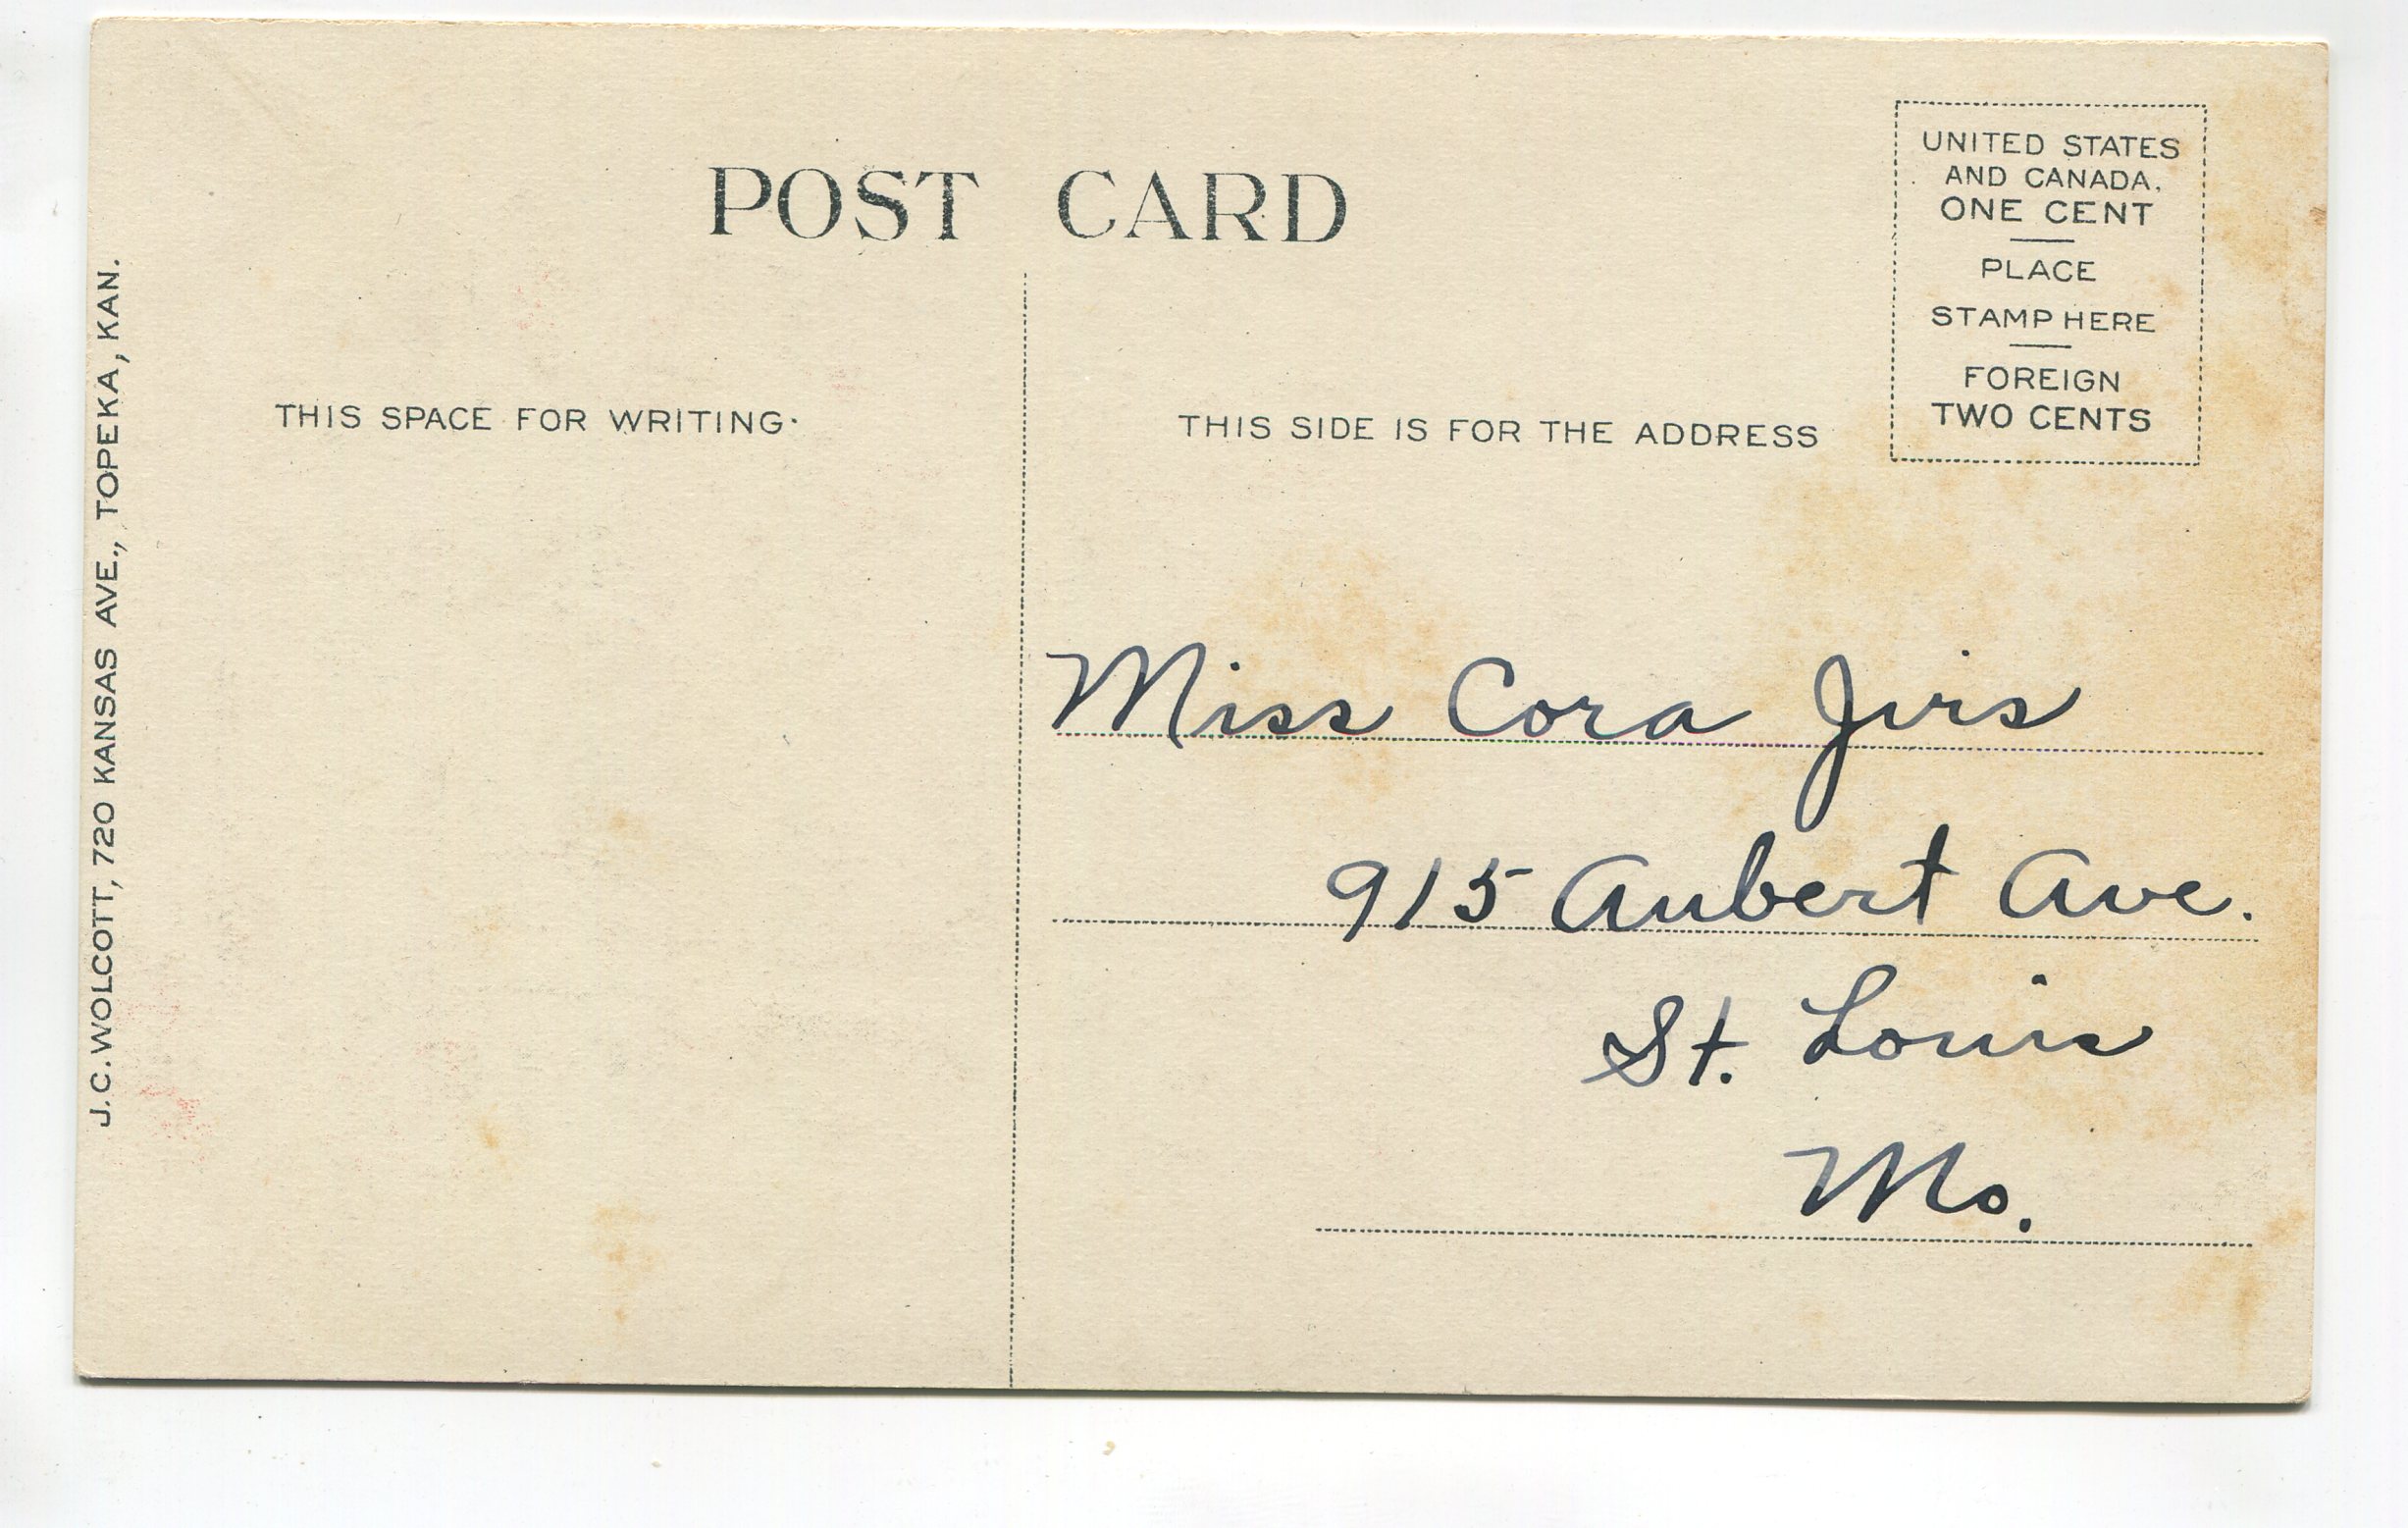 POST CARD
UNITED STATES
AND CANADA.
ONE CENT
PLACE
STAMP HERE
FOREIGN
TWO CENTS
THIS SPACE FOR WRITING.
THIS SIDE IS FOR THE ADDRESS
J.C. WOLCOTT, 720 KANSAS AVE., TOPEKA, KAN.
Miss Cora Jirs
915 Aubert Ave.
St. Louis
Mo.